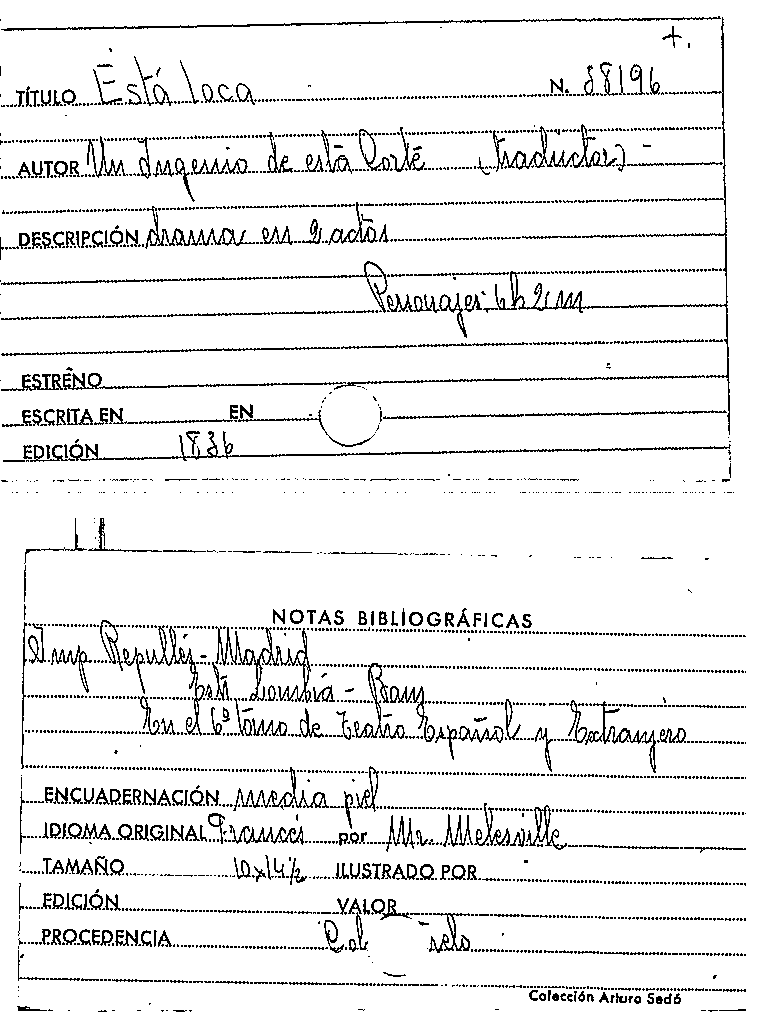 +.
TÍTULO Está loca N. 38196
AUTOR Un Ingenio de está Corté (traductor) -
DESCRIPCIÓN drama en 2 actos
Personajes: 6h 2m
ESTRENO
ESCRITA EN EN
EDICIÓN 1836
NOTAS BIBLIOGRÁFICAS
Imp Repullés - Madrid
Estr Lombía -
En el 6º tomo de Teatro Español y Extranjero
ENCUADERNACIÓN media piel
IDIOMA ORIGINAL Francés por Mr. Melesville
TAMAÑO 10x14½ ILUSTRADO POR
EDICIÓN VALOR
PROCEDENCIA Col
Colección Arturo Sedó